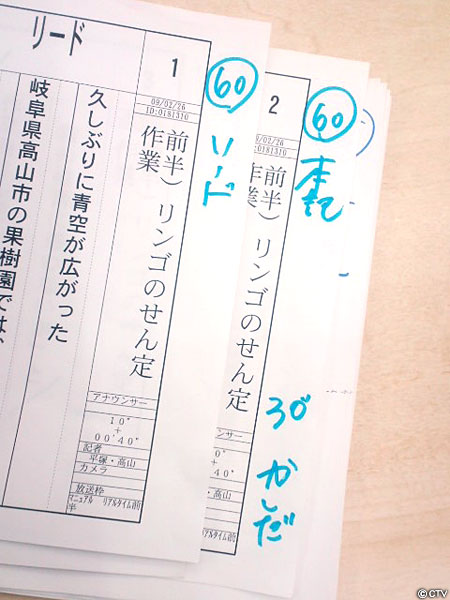 リード
1
09/02/26
ID:0181310
前半) リンゴのせん定
作業
久しぶりに青空が広がった
岐阜県高山市の果樹園では、
アナウンサー
10"
+
00'40"
記者
平塚・高山
カメラ
放送枠
マニュアル リアルタイム前
半
60
リード
2
/02/26
:0181310
前半) リンゴのせん定
作業
ウンサー
0"
40"
・高山
リアルタイム前
60
30"
©CTV